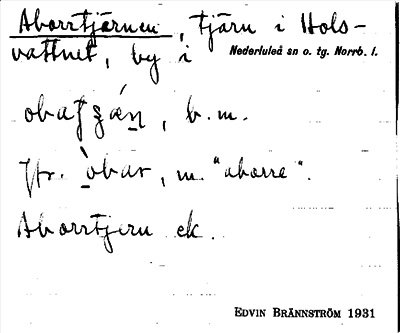 Aborrtjärnen, tjärn i Hols-
vattnet, by i Nederluleå sn o. tg. Norrb. l.
, b. m.
Jfr. òbar, m. "aborre".
Aborrtjern ek.
EDVIN BRÄNNSTRÖM 1931